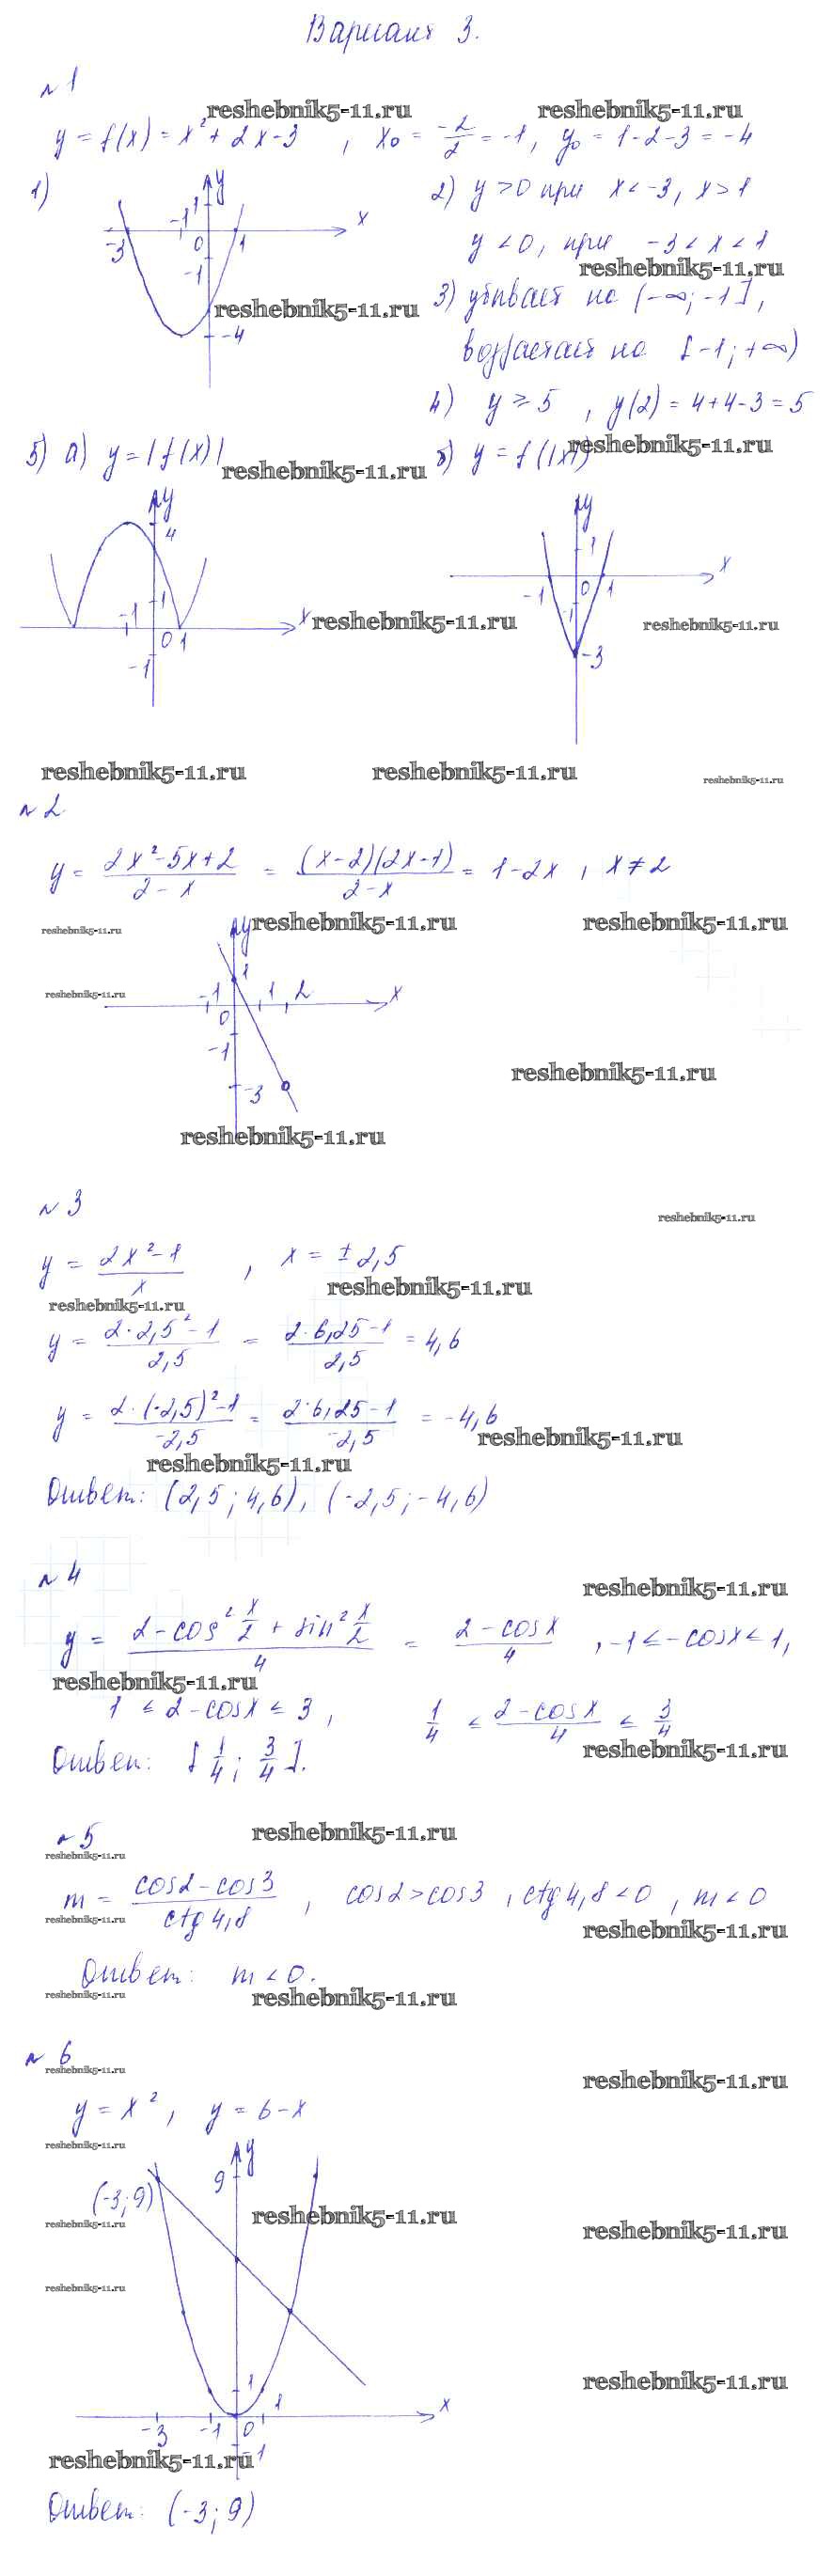 Вариант 3.
№ 1
reshebnik5-11.ru reshebnik5-11.ru
y = f(x) = x² + 2x - 3 , x₀ = -2/2 = -1, y₀ = 1-2-3 = -4
1) y 1 -1 x -3 0 1 -1 -4
2) y > 0 при x < -3, x > 1
y < 0, при -3 < x < 1
reshebnik5-11.ru
3) убывает на (-∞; -1],
reshebnik5-11.ru
возрастает на [-1; +∞)
4) y ≥ 5 , y(2) = 4+4-3 = 5
5) а) y = |f(x)| б) y = f(|x|)
reshebnik5-11.ru reshebnik5-11.ru
y 4 -1 1 x 0 1 -1
y 1 x -1 0 1 -1 -3
reshebnik5-11.ru reshebnik5-11.ru
reshebnik5-11.ru reshebnik5-11.ru reshebnik5-11.ru
№ 2
y = (2x² - 5x + 2)/(2 - x) = (x-2)(2x-1)/(2-x) = 1-2x , x ≠ 2
reshebnik5-11.ru reshebnik5-11.ru reshebnik5-11.ru
reshebnik5-11.ru
y 1 -1 1 2 x 0 -1 -3
reshebnik5-11.ru
reshebnik5-11.ru
№ 3
reshebnik5-11.ru
y = (2x² - 1)/x , x = ± 2,5
reshebnik5-11.ru
reshebnik5-11.ru
y = (2·2,5² - 1)/2,5 = (2·6,25 - 1)/2,5 = 4,6
y = (2·(-2,5)² - 1)/-2,5 = (2·6,25 - 1)/-2,5 = -4,6
reshebnik5-11.ru
reshebnik5-11.ru
Ответ: (2,5; 4,6), (-2,5; -4,6)
№ 4
reshebnik5-11.ru
y = (2 - cos² x/2 + sin² x/2)/4 = (2 - cosx)/4 , -1 ≤ -cosx ≤ 1,
reshebnik5-11.ru
1 ≤ 2 - cosx ≤ 3 , 1/4 ≤ (2 - cosx)/4 ≤ 3/4
reshebnik5-11.ru
Ответ: [1/4; 3/4].
№ 5
reshebnik5-11.ru
reshebnik5-11.ru
m = (cos2 - cos3)/ctg4,8 , cos2 > cos3 , ctg4,8 < 0 , m < 0
reshebnik5-11.ru reshebnik5-11.ru
Ответ: m < 0.
reshebnik5-11.ru reshebnik5-11.ru
№ 6
reshebnik5-11.ru reshebnik5-11.ru
y = x² , y = 6 - x
reshebnik5-11.ru
y 9 (-3; 9)
reshebnik5-11.ru reshebnik5-11.ru reshebnik5-11.ru
reshebnik5-11.ru
reshebnik5-11.ru
1 1 x
-3 -1 0
reshebnik5-11.ru -1
Ответ: (-3; 9)